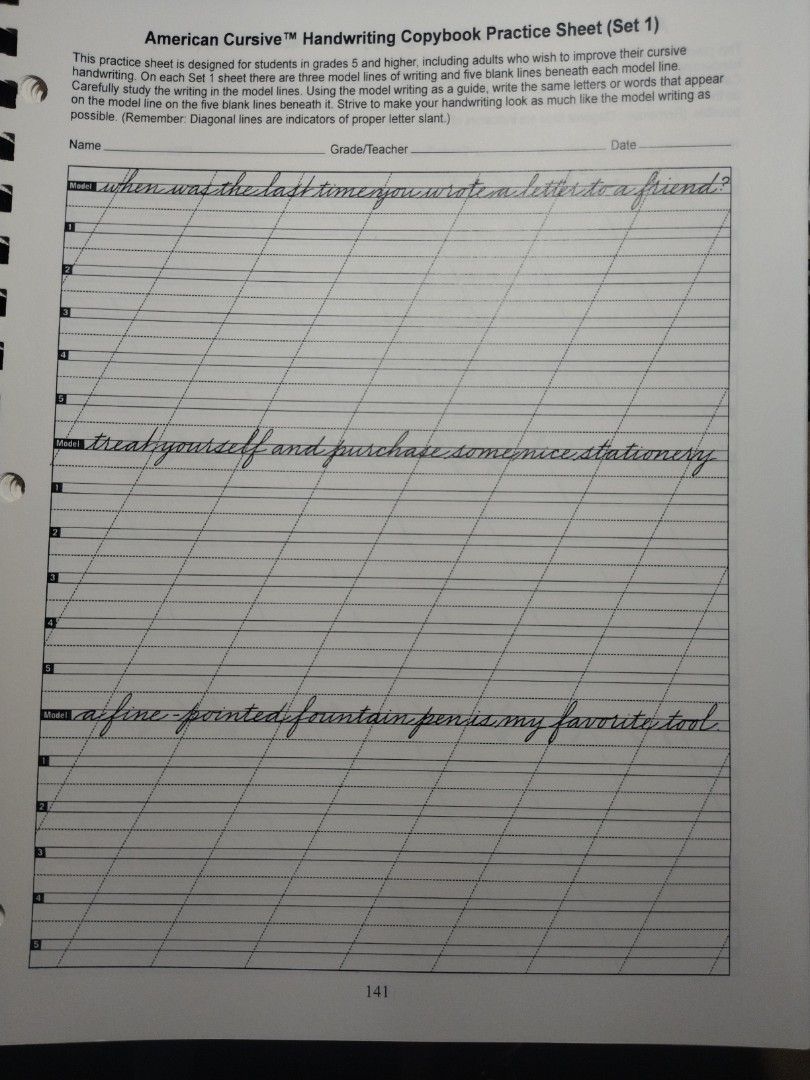 American Cursive™ Handwriting Copybook Practice Sheet (Set 1)
This practice sheet is designed for students in grades 5 and higher, including adults who wish to improve their cursive
handwriting. On each Set 1 sheet there are three model lines of writing and five blank lines beneath each model line.
Carefully study the writing in the model lines. Using the model writing as a guide, write the same letters or words that appear
on the model line on the five blank lines beneath it. Strive to make your handwriting look as much like the model writing as
possible. (Remember: Diagonal lines are indicators of proper letter slant.)
Name Grade/Teacher Date
Model when was the last time you wrote a letter to a friend?
1
2
3
4
5
Model treat yourself and purchase some nice stationery
1
2
3
4
5
Model a fine-pointed fountain pen is my favorite tool.
1
2
3
4
5
141